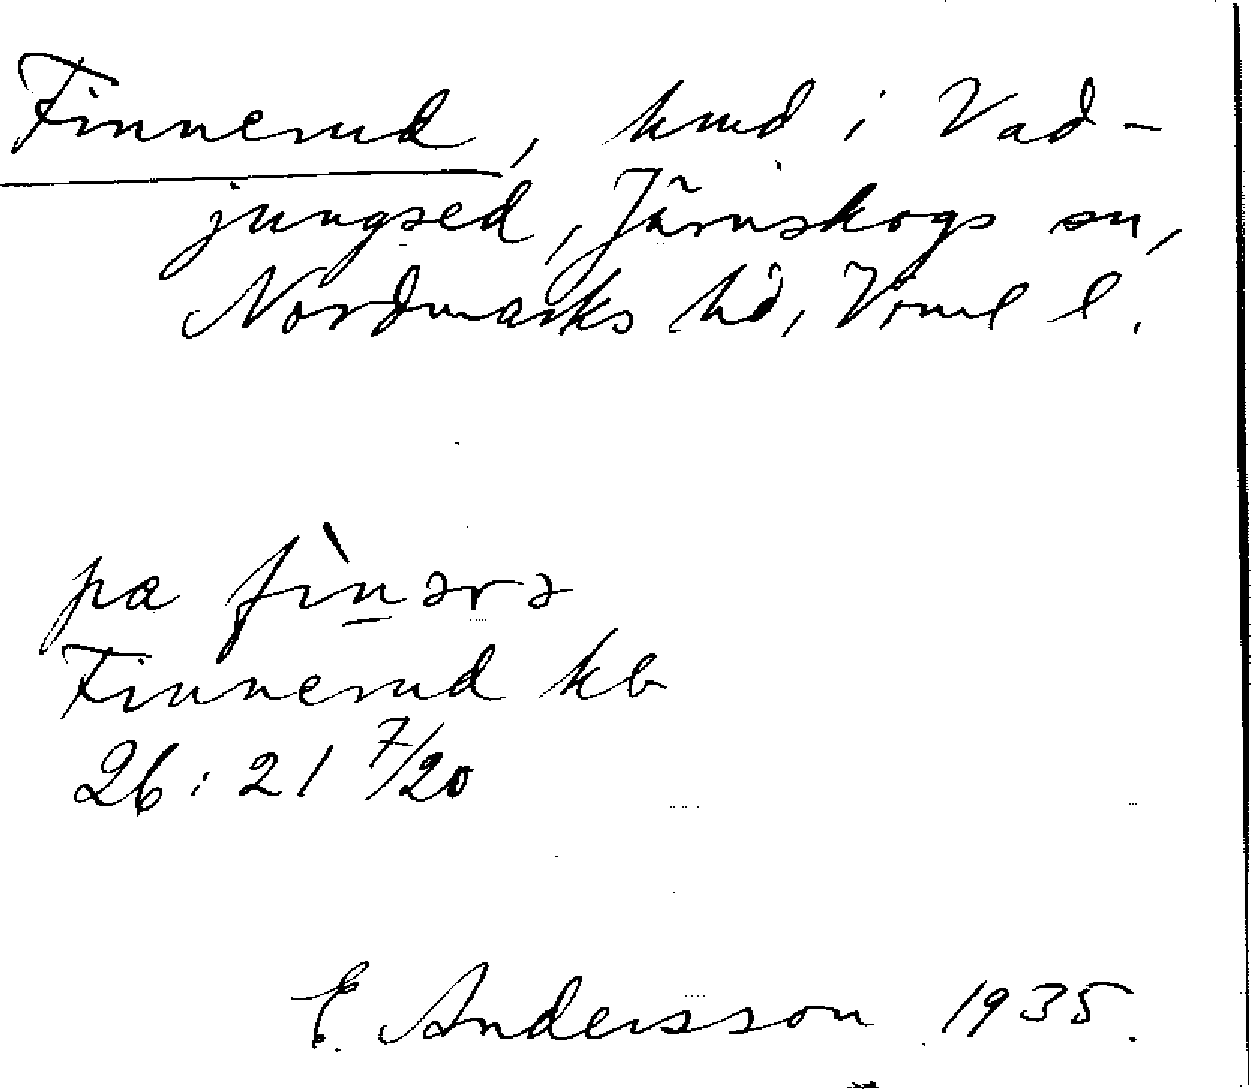 Finnerud, hmd i Vad-
jungsed, Järnskogs sn,
Nordmarks hd, Vrml l.
pa fìnərə
Finnerud kb
26:21 7/20
E. Andersson 1935.